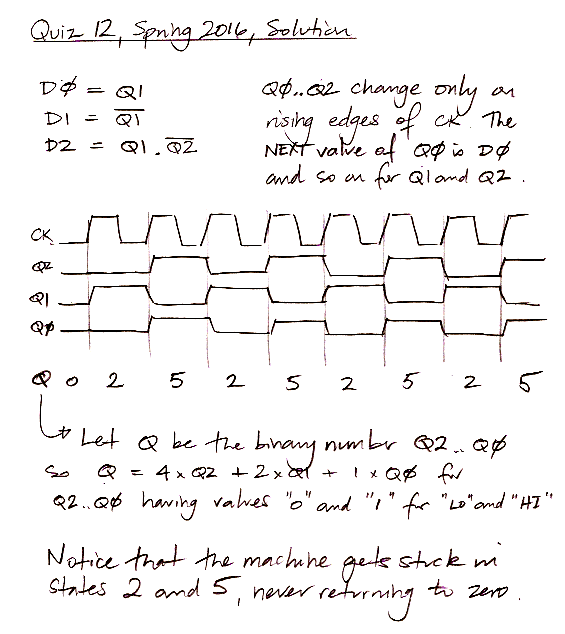 Quiz 12, Spring 2016, Solution
DØ = Q1
D1 = Q̅1̅
D2 = Q1 . Q̅2̅
QØ..Q2 change only on
rising edges of CK. The
NEXT value of QØ is DØ
and so on for Q1 and Q2.
CK
Q2
Q1
QØ
Q 0 2 5 2 5 2 5 2 5
Let Q be the binary number Q2..QØ
so Q = 4 x Q2 + 2 x Q1 + 1 x QØ for
Q2..QØ having values "0" and "1" for "LO" and "HI"
Notice that the machine gets stuck in
states 2 and 5, never returning to zero.